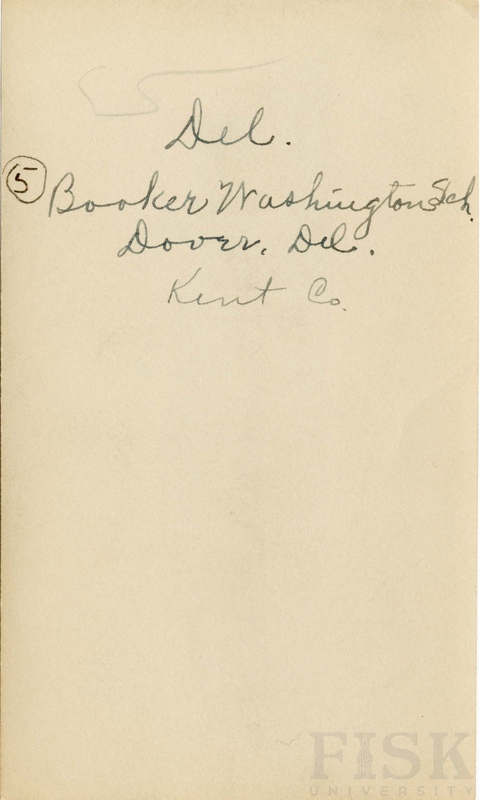 Del.
5 Booker Washington Sch.
Dover, Del.
Kent Co.
FISK
UNIVERSITY